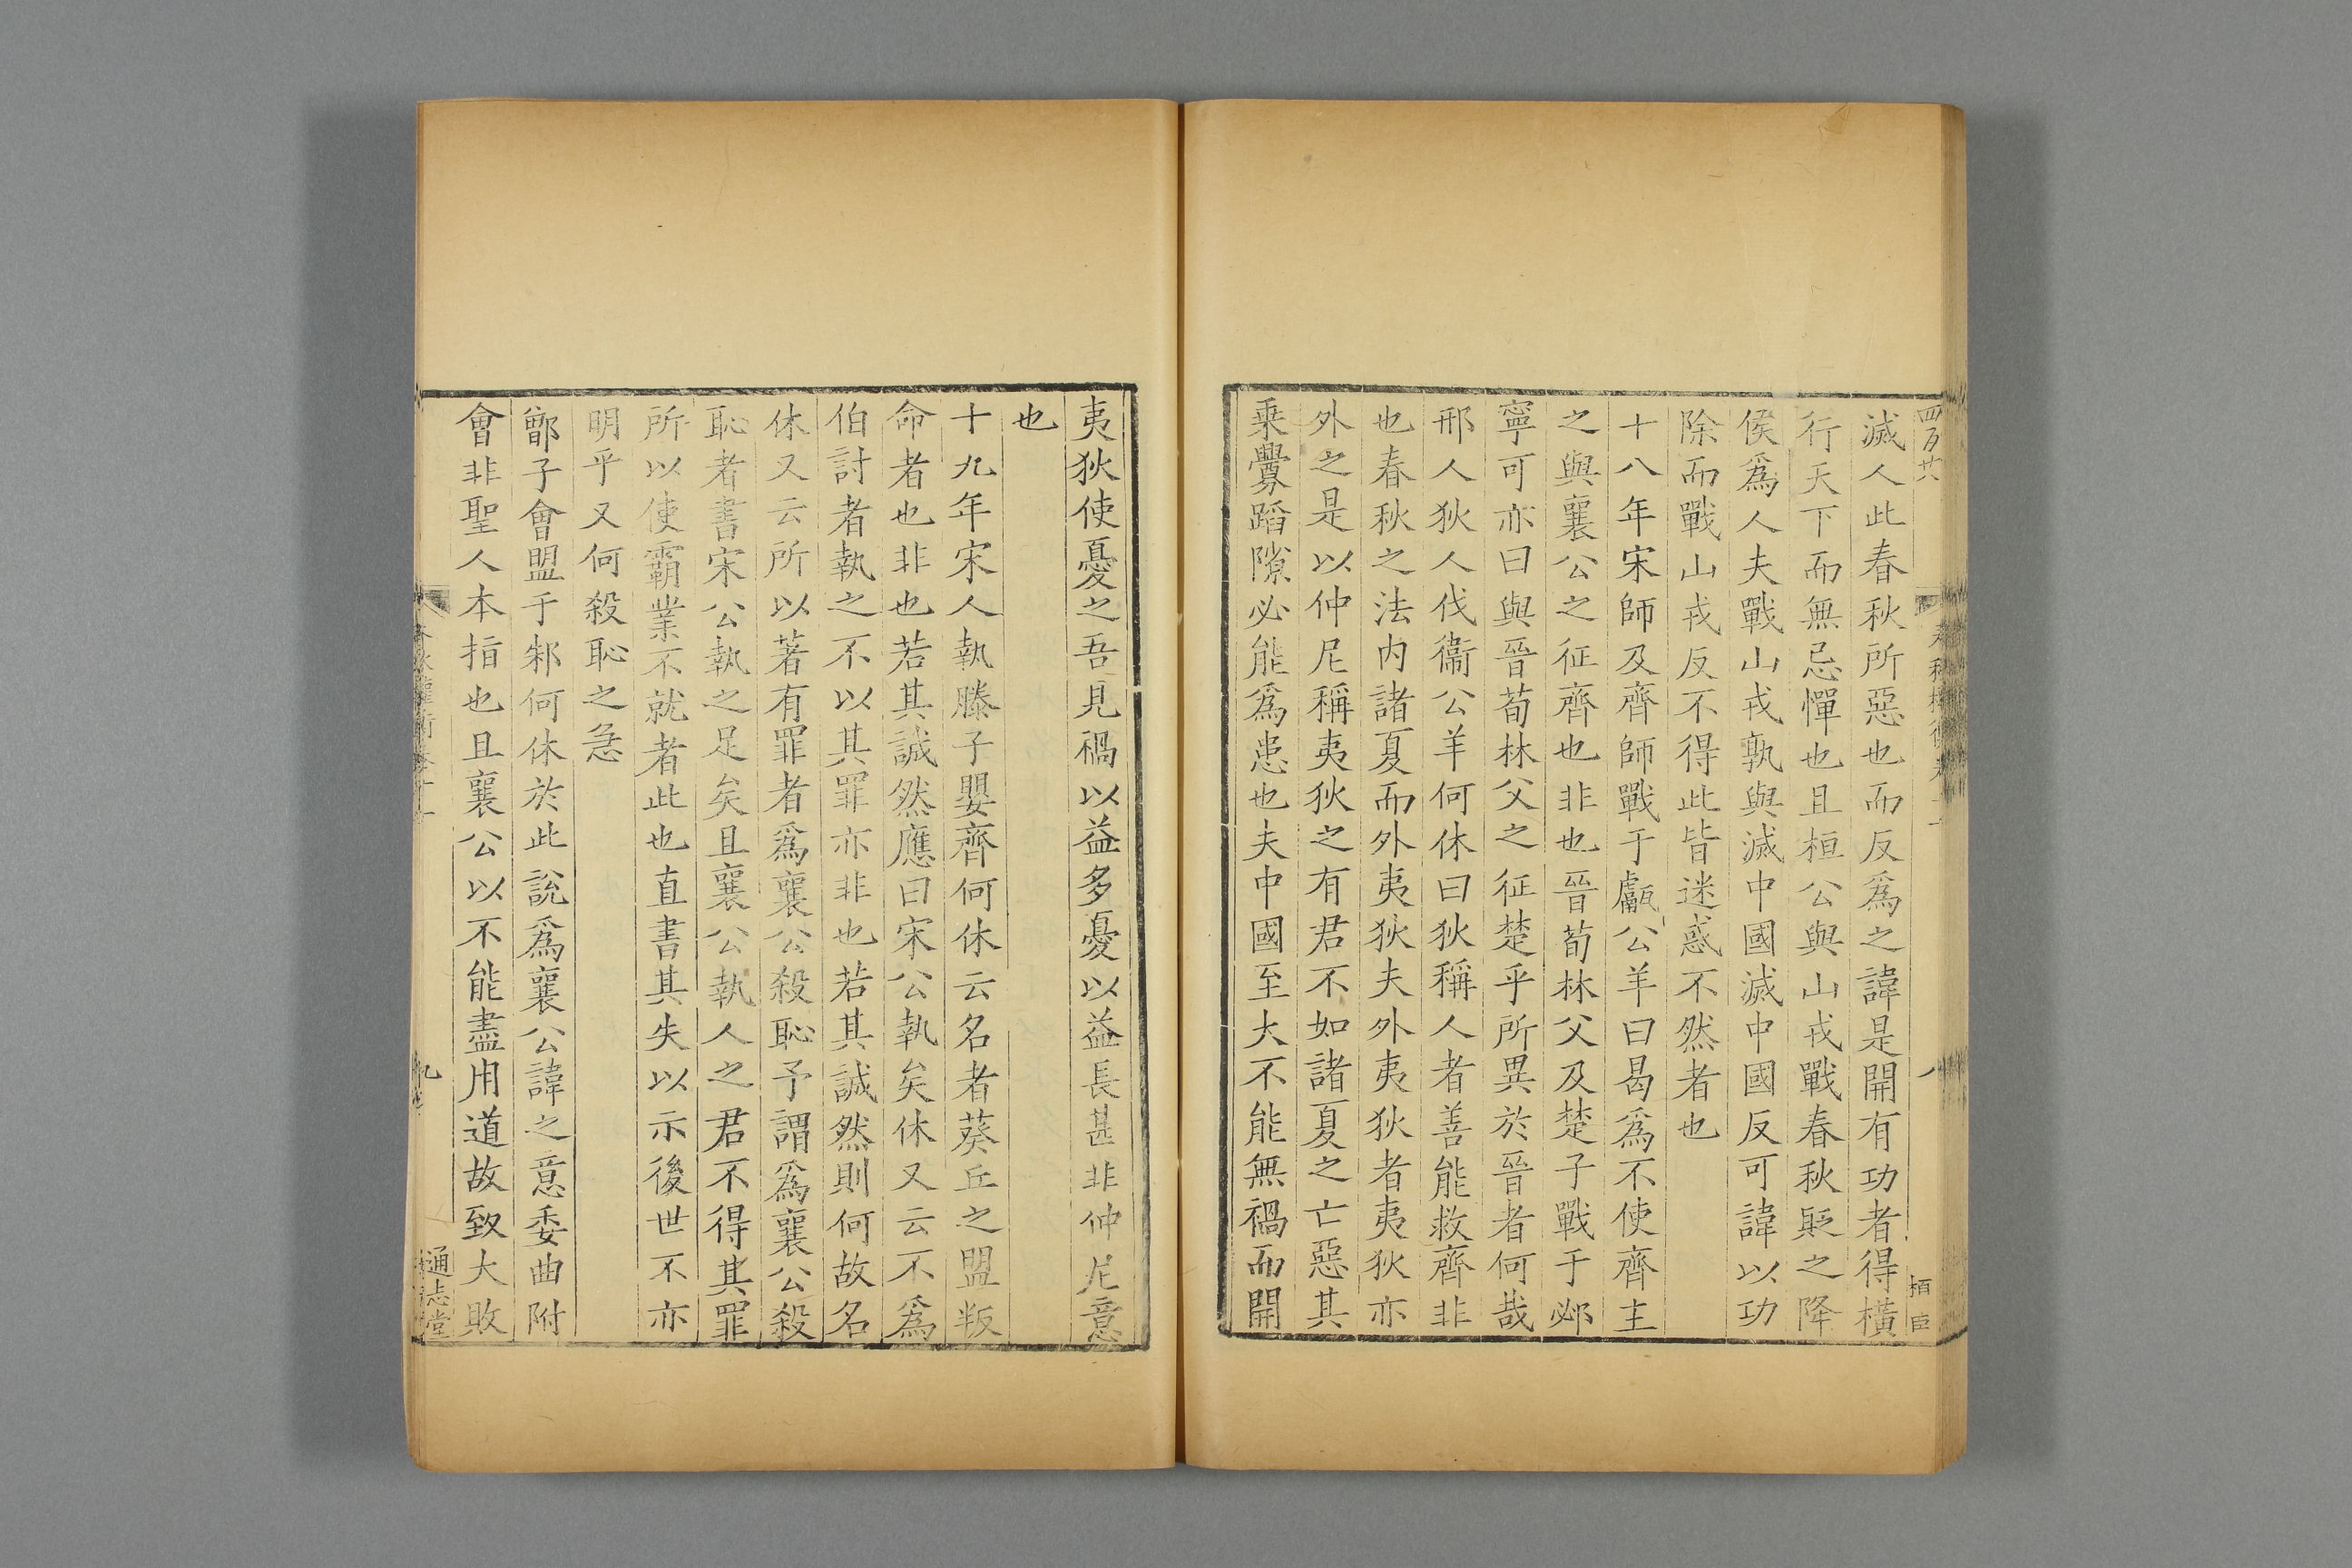 四百廿六
滅人此春秋所惡也而反爲之諱是開有功者得橫
行天下而無忌憚也且桓公與山戎戰春秋貶之降
侯爲人夫戰山戎孰與滅中國滅中國反可諱以功
除而戰山戎反不得此皆迷惑不然者也
十八年宋師及齊師戰于甗公羊曰曷爲不使齊主
之與襄公之征齊也非也晉荀林父及楚子戰于邲
寧可亦曰與晉荀林父之征楚乎所異於晉者何哉
邢人狄人伐衞公羊何休曰狄稱人者善能救齊非
也春秋之法内諸夏而外夷狄夫外夷狄者夷狄亦
外之是以仲尼稱夷狄之有君不如諸夏之亡惡其
乗釁蹈隙必能爲患也夫中國至大不能無禍而開
夷狄使憂之吾見禍以益多憂以益長甚非仲尼意
也
十九年宋人執滕子嬰齊何休云名者葵丘之盟叛
命者也非也若其誠然應曰宋公執矣休又云不爲
伯討者執之不以其罪亦非也若其誠然則何故名
休又云所以著有罪者爲襄公殺恥予謂爲襄公殺
恥者書宋公執之足矣且襄公執人之君不得其罪
所以使霸業不就者此也直書其失以示後世不亦
明乎又何殺恥之急
鄫子會盟于邾何休於此說爲襄公諱之意委曲附
會非聖人本指也且襄公以不能盡用道故致大敗
九
通志堂